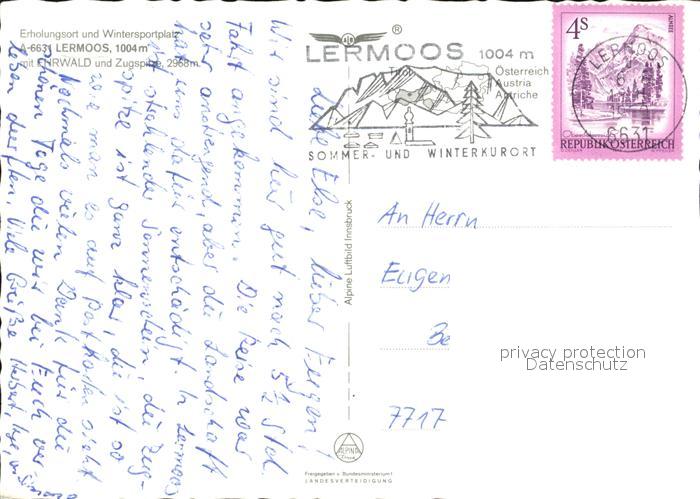 Erholungsort und Wintersportplatz
A-6631 LERMOOS, 1004 m
mit EHRWALD und Zugspitze, 2968m
Liebe Else, lieber Eugen!
Wir sind hier gut nach 5½ Std.
Fahrt angekommen. Die Reise war
sehr anstrengend, aber die Landschaft
hat uns dafür entschädigt. In Lermoos
ist strahlender Sonnenschein, die Zug-
spitze ist ganz klar, die ist so
wie man es auf Postkarten sieht.
Nochmals vielen Dank für die
schönen Tage die wir bei Euch ver-
leben durften. Viele Grüße Herbert
Alpine Luftbild Innsbruck
®
LERMOOS 1004 m
Tirol
Österreich
Austria
Autriche
SOMMER- UND WINTERKURORT
4S
ALMSEE
REPUBLIK ÖSTERREICH
LERMOOS
6631
An Herrn
Eugen
Be
7717
privacy protection
Datenschutz
ALPINE
Freigegeben v. Bundesministerium f.
LANDESVERTEIDIGUNG